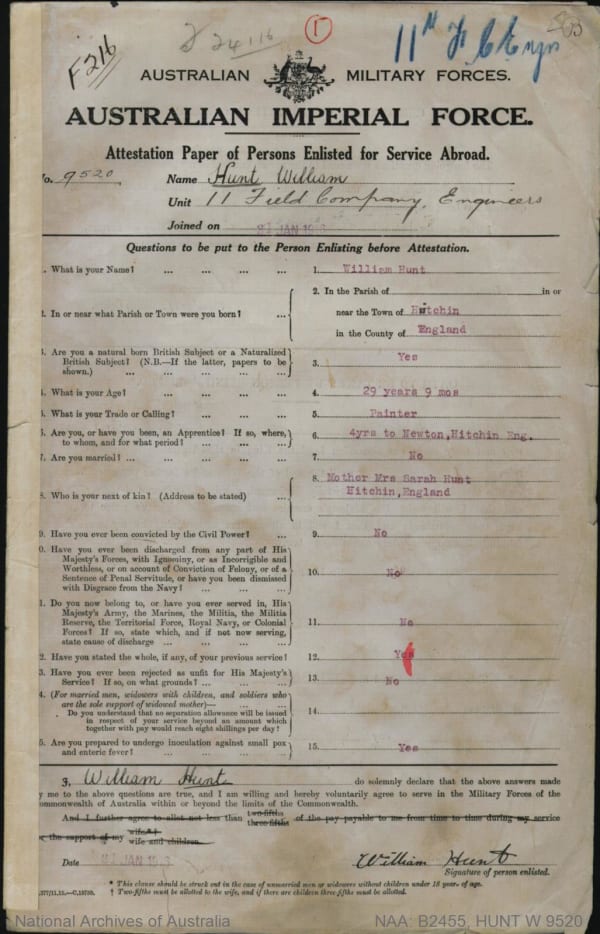 F216
24 1 16
1
11th F C Engrs
AUSTRALIAN MILITARY FORCES.
AUSTRALIAN IMPERIAL FORCE.
Attestation Paper of Persons Enlisted for Service Abroad.
No. 9520 Name Hunt William
Unit 11 Field Company, Engineers
Joined on JAN
Questions to be put to the Person Enlisting before Attestation.
1. What is your Name? ... ... ... ... 1. William Hunt
2. In or near what Parish or Town were you born? ... 2. In the Parish of in or
near the Town of Hitchin
in the County of England
3. Are you a natural born British Subject or a Naturalized
British Subject? (N.B.—If the latter, papers to be
shown.) ... ... ... ... ... 3. Yes
4. What is your Age? ... ... ... 4. 29 years 9 mos
5. What is your Trade or Calling? ... ... ... 5. Painter
6. Are you, or have you been, an Apprentice? If so, where,
to whom, and for what period? ... ... ... 6. 4yrs to Newton,Hitchin Eng.
7. Are you married? ... ... ... ... ... 7. No
8. Who is your next of kin? (Address to be stated) ... 8. Mother Mrs Sarah Hunt
Hitchin,England
9. Have you ever been convicted by the Civil Power? ... 9. No
10. Have you ever been discharged from any part of His
Majesty's Forces, with Ignominy, or as Incorrigible and
Worthless, or on account of Conviction of Felony, or of a
Sentence of Penal Servitude, or have you been dismissed
with Disgrace from the Navy? ... ... ... 10. No
11. Do you now belong to, or have you ever served in, His
Majesty's Army, the Marines, the Militia, the Militia
Reserve, the Territorial Force, Royal Navy, or Colonial
Forces? If so, state which, and if not now serving,
state cause of discharge ... ... ... ... 11. No
12. Have you stated the whole, if any, of your previous service? 12. Yes
13. Have you ever been rejected as unfit for His Majesty's
Service? If so, on what grounds? ... ... ... 13. No
14. (For married men, widowers with children, and soldiers who
are the sole support of widowed mother)— ... ...
Do you understand that no separation allowance will be issued
in respect of your service beyond an amount which
together with pay would reach eight shillings per day? 14.
15. Are you prepared to undergo inoculation against small pox
and enteric fever? ... ... ... ... 15. Yes
I, William Hunt do solemnly declare that the above answers made
by me to the above questions are true, and I am willing and hereby voluntarily agree to serve in the Military Forces of the
Commonwealth of Australia within or beyond the limits of the Commonwealth.
And I further agree to allot not less than two-fifths three-fifths of the pay payable to me from time to time during my service
for the support of my wife wife and children.
Date JAN William Hunt
Signature of person enlisted.
* This clause should be struck out in the case of unmarried men or widowers without children under 18 years of age.
† Two-fifths must be allotted to the wife, and if there are children three-fifths must be allotted.
National Archives of Australia NAA: B2455, HUNT W 9520